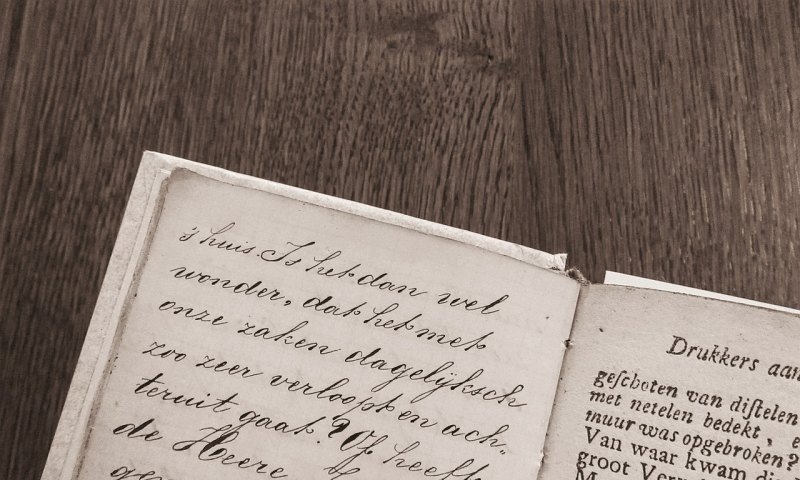 's huis. Is het dan wel
wonder, dat het met
onze zaken dagelijksch
zoo zeer verloopt en ach„
teruit gaat? Of heeft
de Heere
Drukkers aan
geſchoten van diſtelen
met netelen bedekt, e
muur was opgebroken?
Van waar kwam die
groot Verw